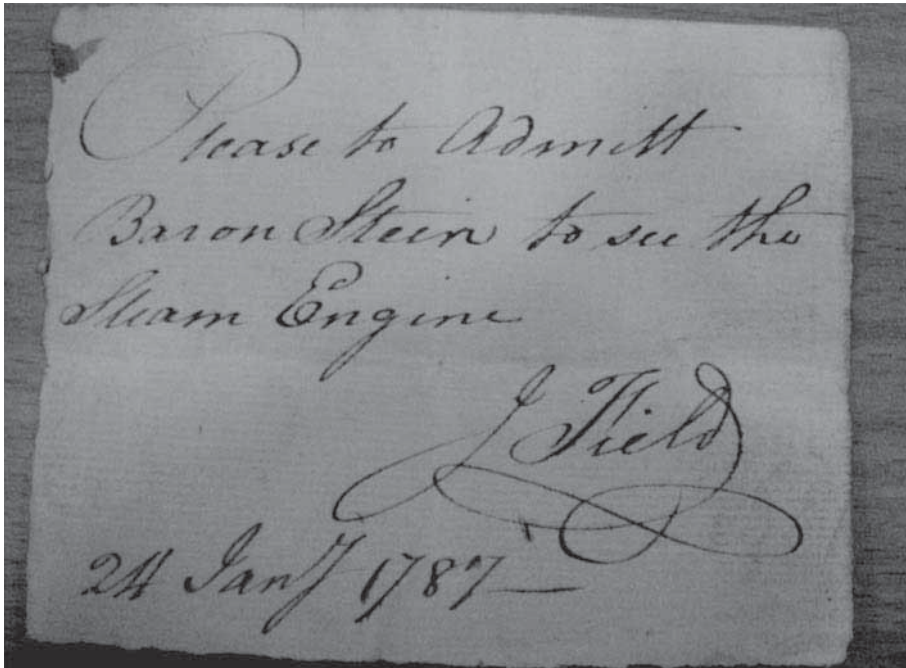 Please to Admitt
Baron Stein to see the
Steam Engine
J Field
24 Jany 1787